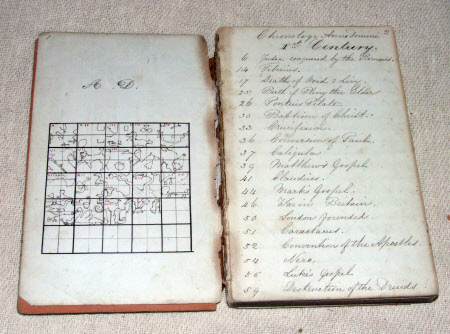 A. D.
2
Chronology Anno Domini
1st Century.
6 Judea conquered by the Romans.
14 Tiberius.
17 Death of Ovid & Livy.
23 Birth of Pliny the Elder
26 Pontius Pilate
30 Baptism of Christ.
33 Crucifixion
36 Conversion of Paul.
37 Caligula
39 Matthew's Gospel
41 Claudius.
44 Mark's Gospel.
46 War in Britain.
50 London founded.
51 Caractacus.
52 Convention of the Apostles.
54 Nero.
55 Luke's Gospel
59 Destruction of the Druids.